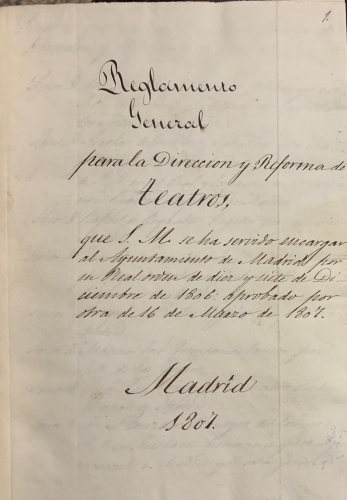 1.
Reglamento
General
para la Direccion y Reforma de
teatros,
que S. M. se ha servido encargar
al Ayuntamiento de Madrid por
su Real orden de diez y siete de Di
ciembre de 1806: aprobado por
otra de 16 de Marzo de 1807.
Madrid
1807.